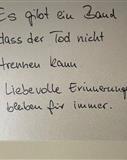 Es gibt ein Band
dass der Tod nicht
trennen kann
Liebevolle Erinnerungen
bleiben für immer.